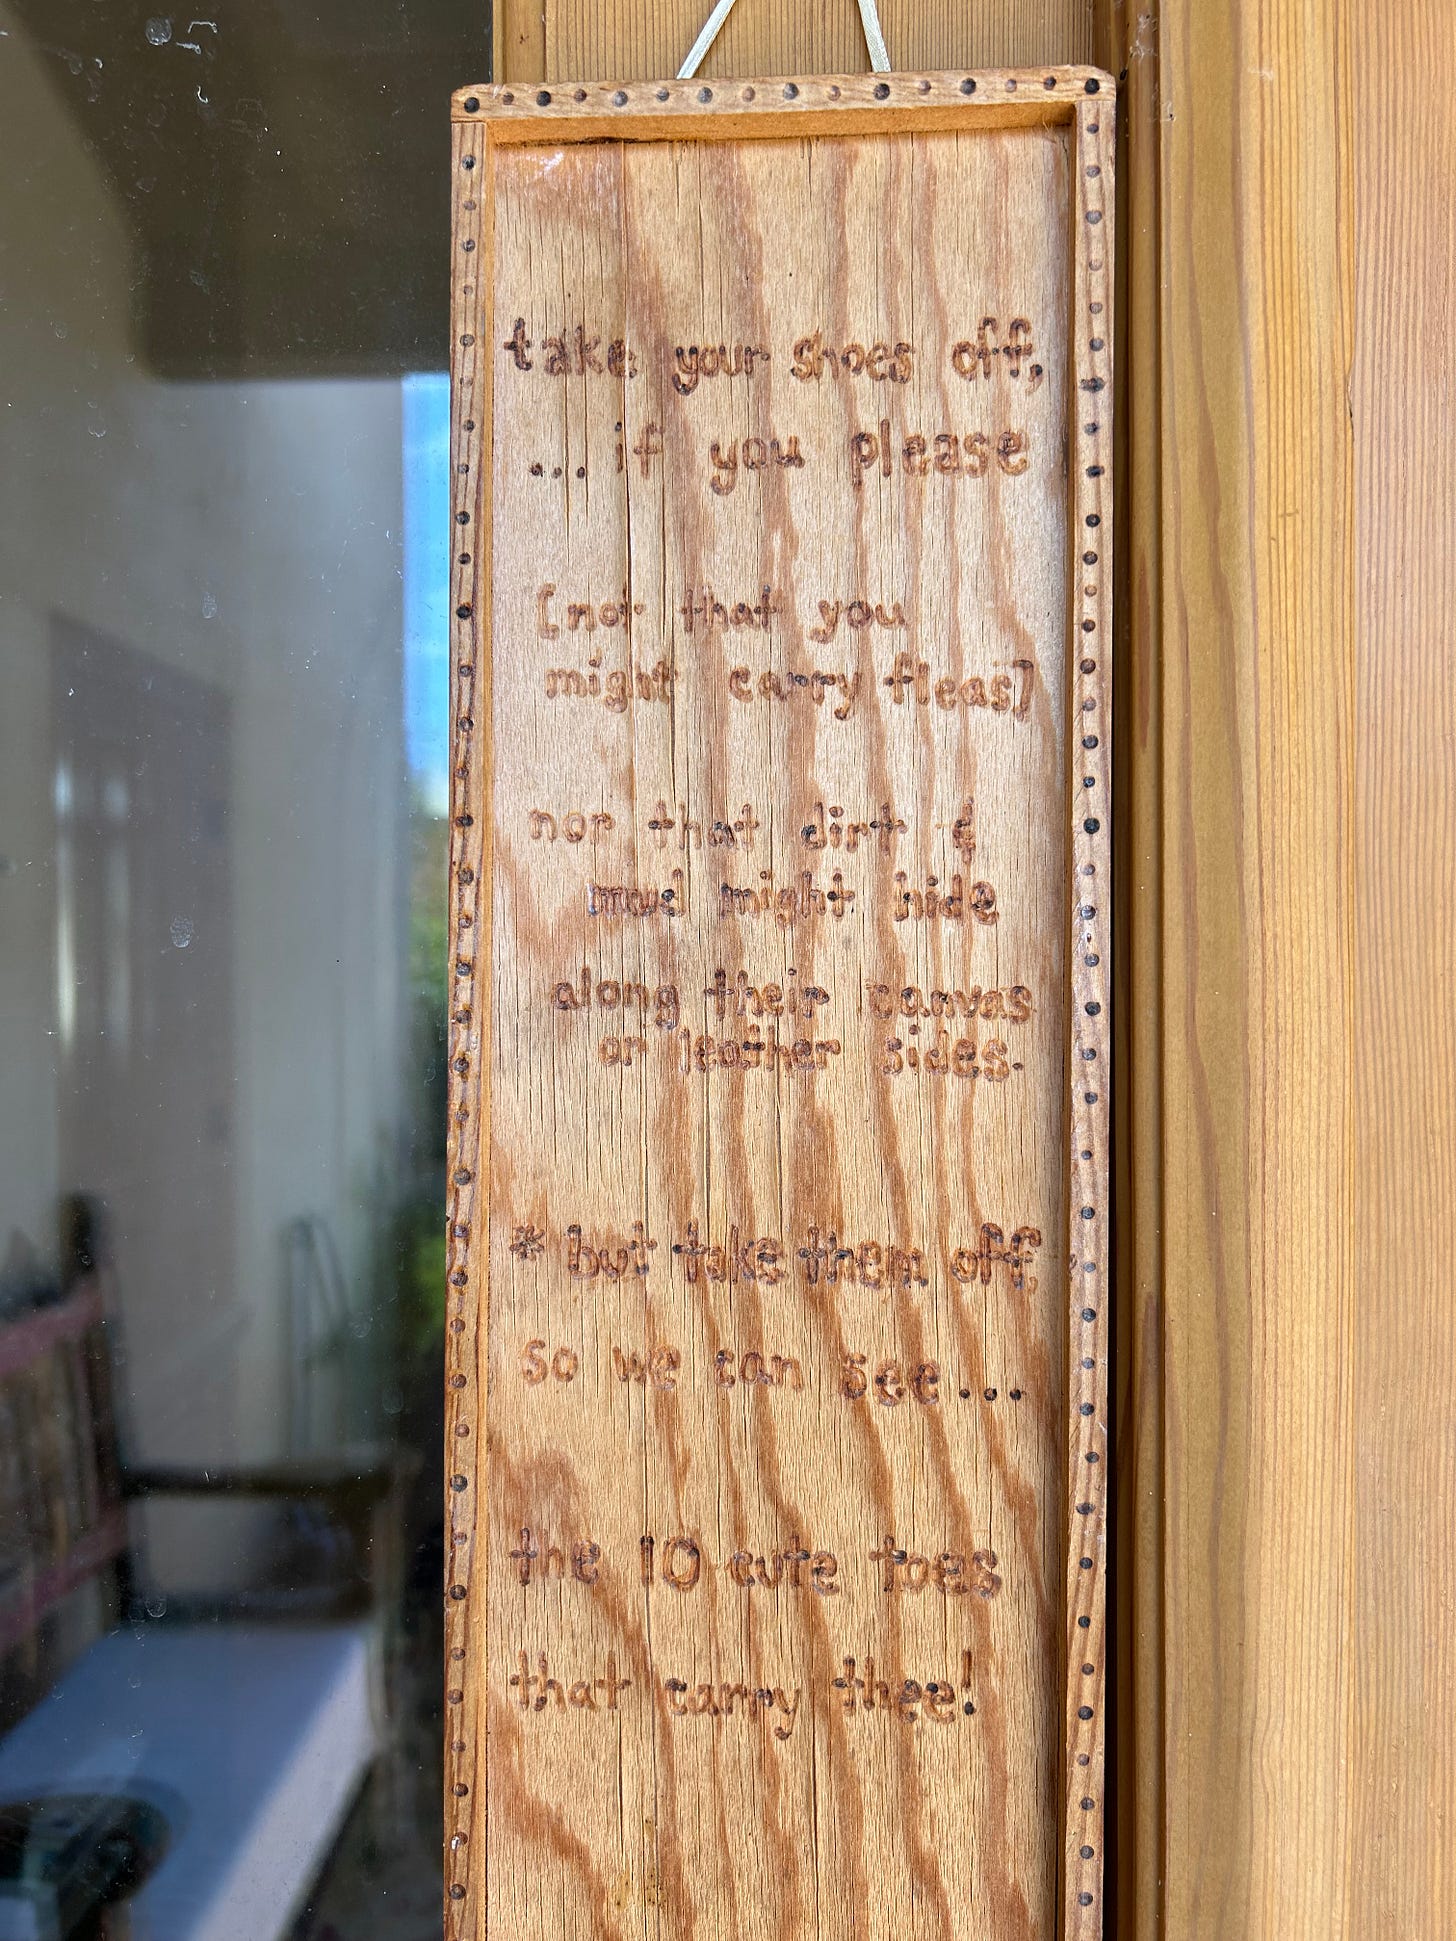 take your shoes off,
... if you please
[not that you
might carry fleas]
nor that dirt &
mud might hide
along their canvas
or leather sides.
* but take them off,
so we can see...
the 10 cute toes
that carry thee!